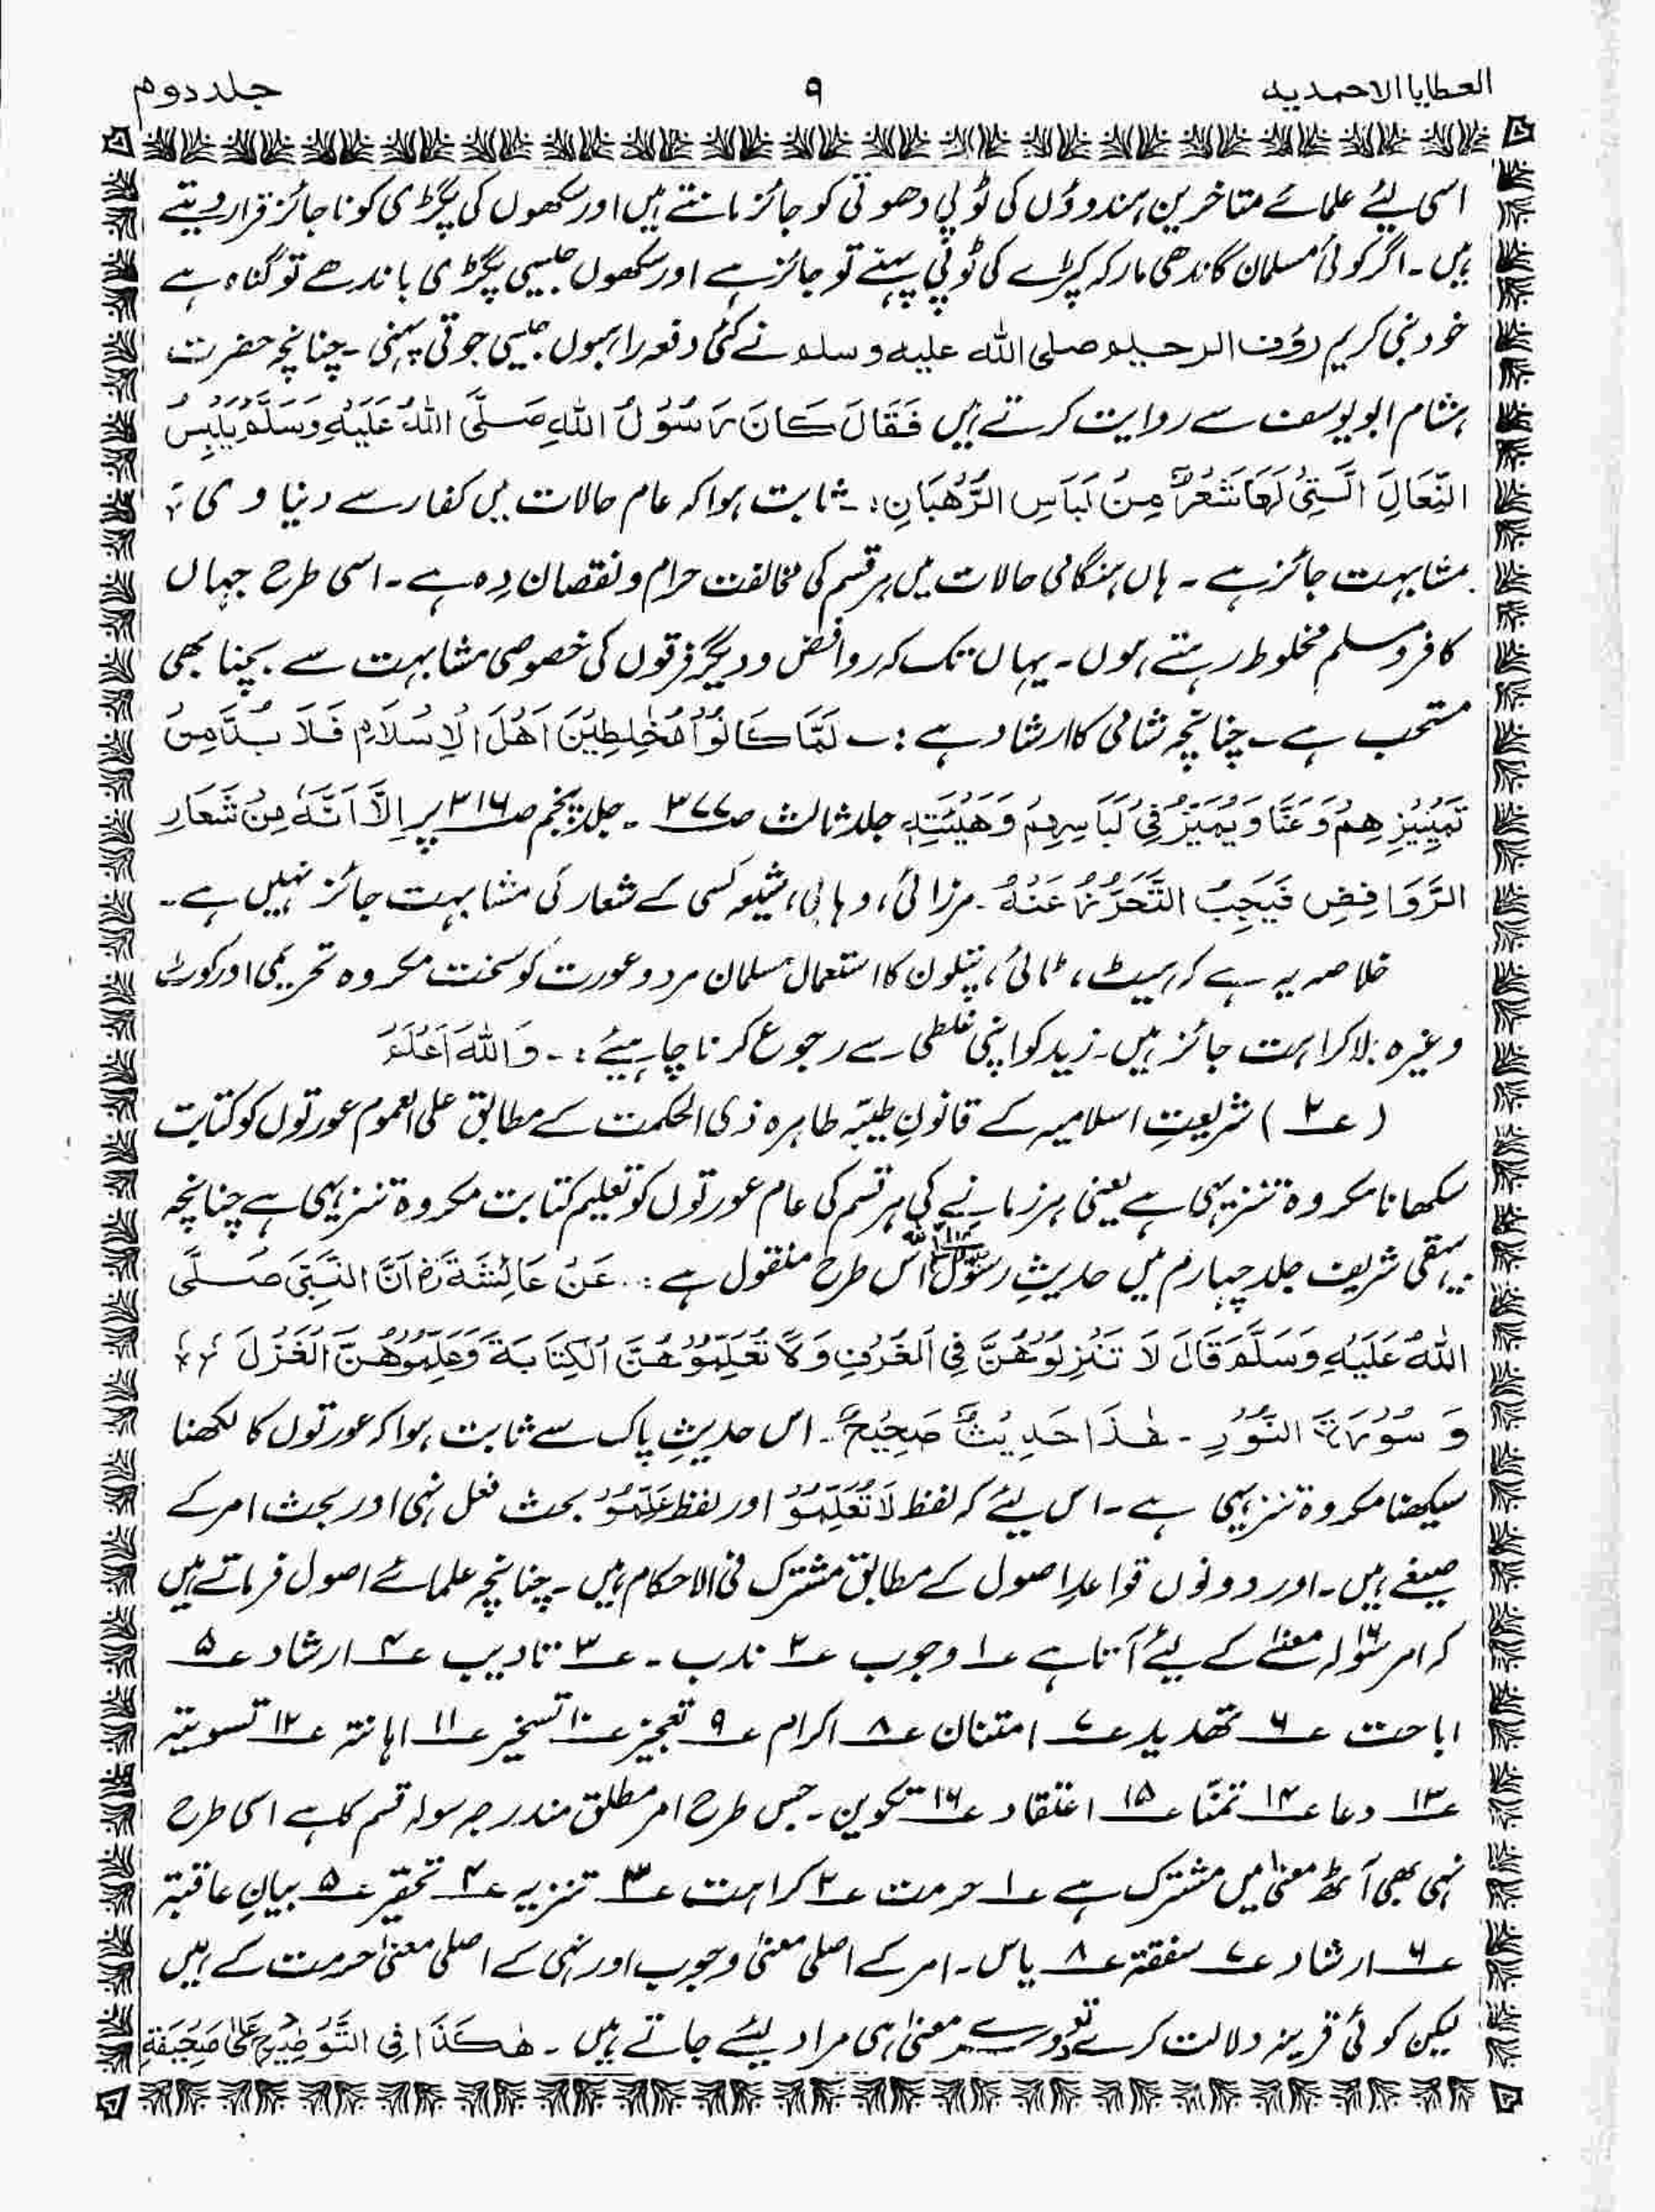 العطایا الاحمدیہ ۹ جلد دوم
اسی لئے علمائے متاخرین ہندوؤں کی ٹوپی دھوتی کو جائز مانتے ہیں اور سکھوں کی پگڑی کو ناجائز قرار دیتے
ہیں۔ اگر کوئی مسلمان گاندھی مارکہ کپڑے کی ٹوپی پہنے تو جائز ہے اور سکھوں جیسی پگڑی باندھے تو گناہ ہے
خود نبی کریم رؤف الرحیم صلی اللہ علیہ وسلم نے کئی دفعہ راہبوں جیسی جوتی پہنی۔ چنانچہ حضرت
ہشام ابو یوسف سے روایت کرتے ہیں فَقَالَ كَانَ رَسُوْلُ اللّٰهِ صَلَّى اللّٰهُ عَلَيْهِ وَسَلَّمَ يَلْبِسُ
النِّعَالَ الَّتِيْ لَهَا شَعْرٌ مِنْ لِبَاسِ الرُّهْبَانِ :۔ ثابت ہوا کہ عام حالات میں کفار سے دنیاوی
مشابہت جائز ہے۔ ہاں ہنگامی حالات میں ہر قسم کی مخالفت حرام و نقصان دِہ ہے۔ اسی طرح جہاں
کافر و مسلم مخلوط رہتے ہوں۔ یہاں تک کہ روافض و دیگر فرقوں کی خصوصی مشابہت سے بچنا بھی
مستحب ہے۔ چنانچہ شامی کا ارشاد ہے :۔ لَمَّا كَانُوْا مُخٰلِطِيْنَ اَهْلَ الْاِسْلَامِ فَلَا بُدَّ مِنْ
تَمْيِيْزِهِمْ وَعَنَّا وَيُمَيَّزُ فِيْ لِبَاسِهِمْ وَهَيْئَتِهٖ جلد ثالث صـ ۳۷۷۔ جلد پنجم صـ ۳۱۶ پر اِلَّا اَنَّهٗ مِنْ شَعَارِ
الرَّوَافِضِ فَيَجِبُ التَّحَرُّزُ عَنْهُ۔ مرزائی، وہابی، شیعہ کسی کے شعار کی مشابہت جائز نہیں ہے۔
خلاصہ یہ ہے کہ ہیٹ، ٹائی، پتلون کا استعمال مسلمان مرد و عورت کو سخت مکروہ تحریمی اور کوٹ
وغیرہ بلا کراہت جائز ہیں۔ زید کو اپنی غلطی سے رجوع کرنا چاہیئے :۔ وَاللّٰهُ اَعْلَمُ
(ع۲) شریعتِ اسلامیہ کے قانونِ طیبّہ طاہرہ ذی الحکمت کے مطابق علی العموم عورتوں کو کتابت
سکھانا مکروہ تنزیہی ہے یعنی ہر زمانے کی ہر قسم کی عام عورتوں کو تعلیم کتابت مکروہ تنزیہی ہے چنانچہ
بیہقی شریف جلد چہارم میں حدیثِ رسولؐ اس طرح منقول ہے :۔ عَنْ عَائِشَةَ رَض اَنَّ النَّبِيَّ صَلَّى
اللّٰهُ عَلَيْهِ وَسَلَّمَ قَالَ لَا تَنْزِلُوْهُنَّ فِي الْغُرُفِ وَلَا تُعَلِّمُوْهُنَّ الْكِتَابَةَ وَعَلِّمُوْهُنَّ الْغَزْلَ
وَ سُوْرَةَ النُّوْرِ۔ هٰذَا حَدِيْثٌ صَحِيْحٌ۔ اس حدیثِ پاک سے ثابت ہوا کہ عورتوں کا لکھنا
سیکھنا مکروہ تنزیہی ہے۔ اس لیئے کہ لفظ لَا تُعَلِّمُوْ اور لفظ عَلِّمُوْ بحث فعل نہی اور بحث امر کے
صیغے ہیں۔ اور دونوں قواعدِ اصول کے مطابق مشترک فی الاحکام ہیں۔ چنانچہ علمائے اصول فرماتے ہیں
کہ امر سولہ ۱۶ معنے کے لیئے آتا ہے ع۱ وجوب ع۲ ندب۔ ع۳ تادیب ع۴ ارشاد ع۵
اباحت ع۶ تھدید ع۷ امتنان ع۸ اکرام ع۹ تعجیز ع۱۰ تسخیر ع۱۱ اہانتہ ع۱۲ تسویتہ
ع۱۳ دعا ع۱۴ تمنّا ع۱۵ اعتقاد ع۱۶ تکوین۔ جس طرح امر مطلق مندرجہ سولہ قسم کا ہے اسی طرح
نہی بھی آٹھ معنیٰ میں مشترک ہے ع۱ حرمت ع۲ کراہت ع۳ تنزیہ ع۴ تحقیر ع۵ بیانِ عاقبتہ
ع۶ ارشاد ع۷ سفقتہ ع۸ یاس۔ امر کے اصلی معنیٰ وجوب اور نہی کے اصلی معنیٰ حرمت کے ہیں
لیکن کوئی قرینہ دلالت کرے تو دوسرے معنیٰ ہی مراد لیئے جاتے ہیں۔ هٰكَذَا فِي التَّوْضِيْحِ عَلٰى صَحِيْفَةِ